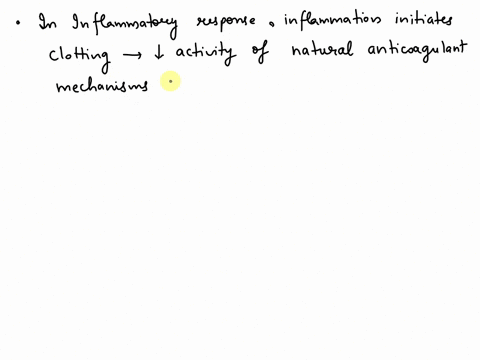 • In Inflammatory response, inflammation initiates
clotting → ↓ activity of natural anticoagulant
mechanisms